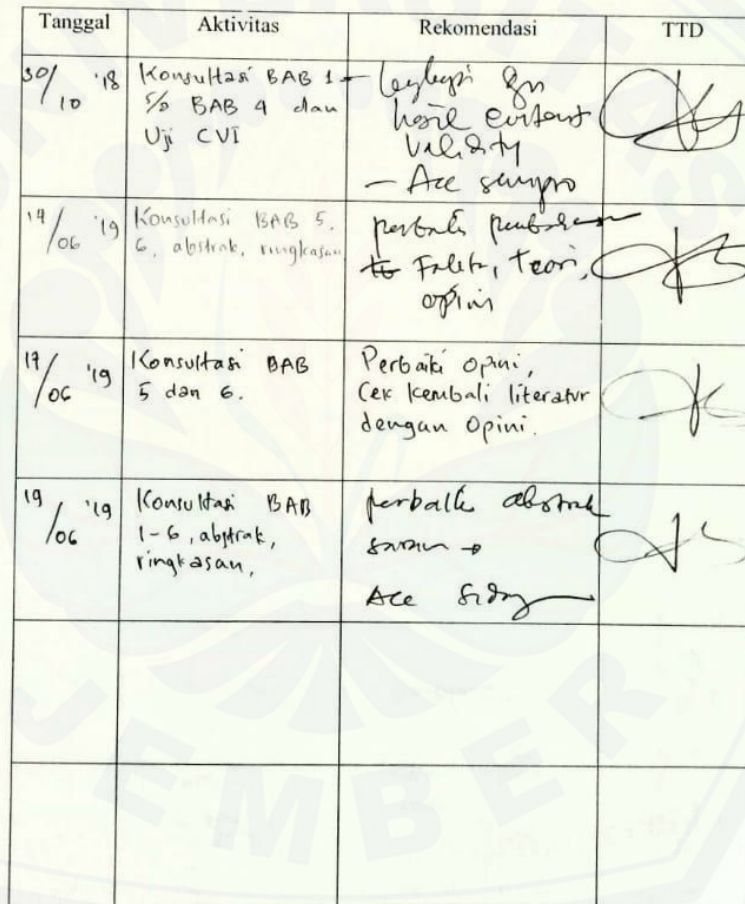 Tanggal Aktivitas Rekomendasi TTD
30/10 '18
Konsultasi BAB 1
s/d BAB 4 dan
Uji CVI
- lengkapi dgn
hasil content
validity
- Acc sempro
14/06 '19
Konsultasi BAB 5,
6, abstrak, ringkasan
perbaiki pembahasan
Fakta, teori,
opini
17/06 '19
Konsultasi BAB
5 dan 6.
Perbaiki Opini,
Cek kembali literatur
dengan Opini.
19/06 '19
Konsultasi BAB
1-6, abstrak,
ringkasan,
perbaiki abstrak
saran
Acc Sidang
JEMBER